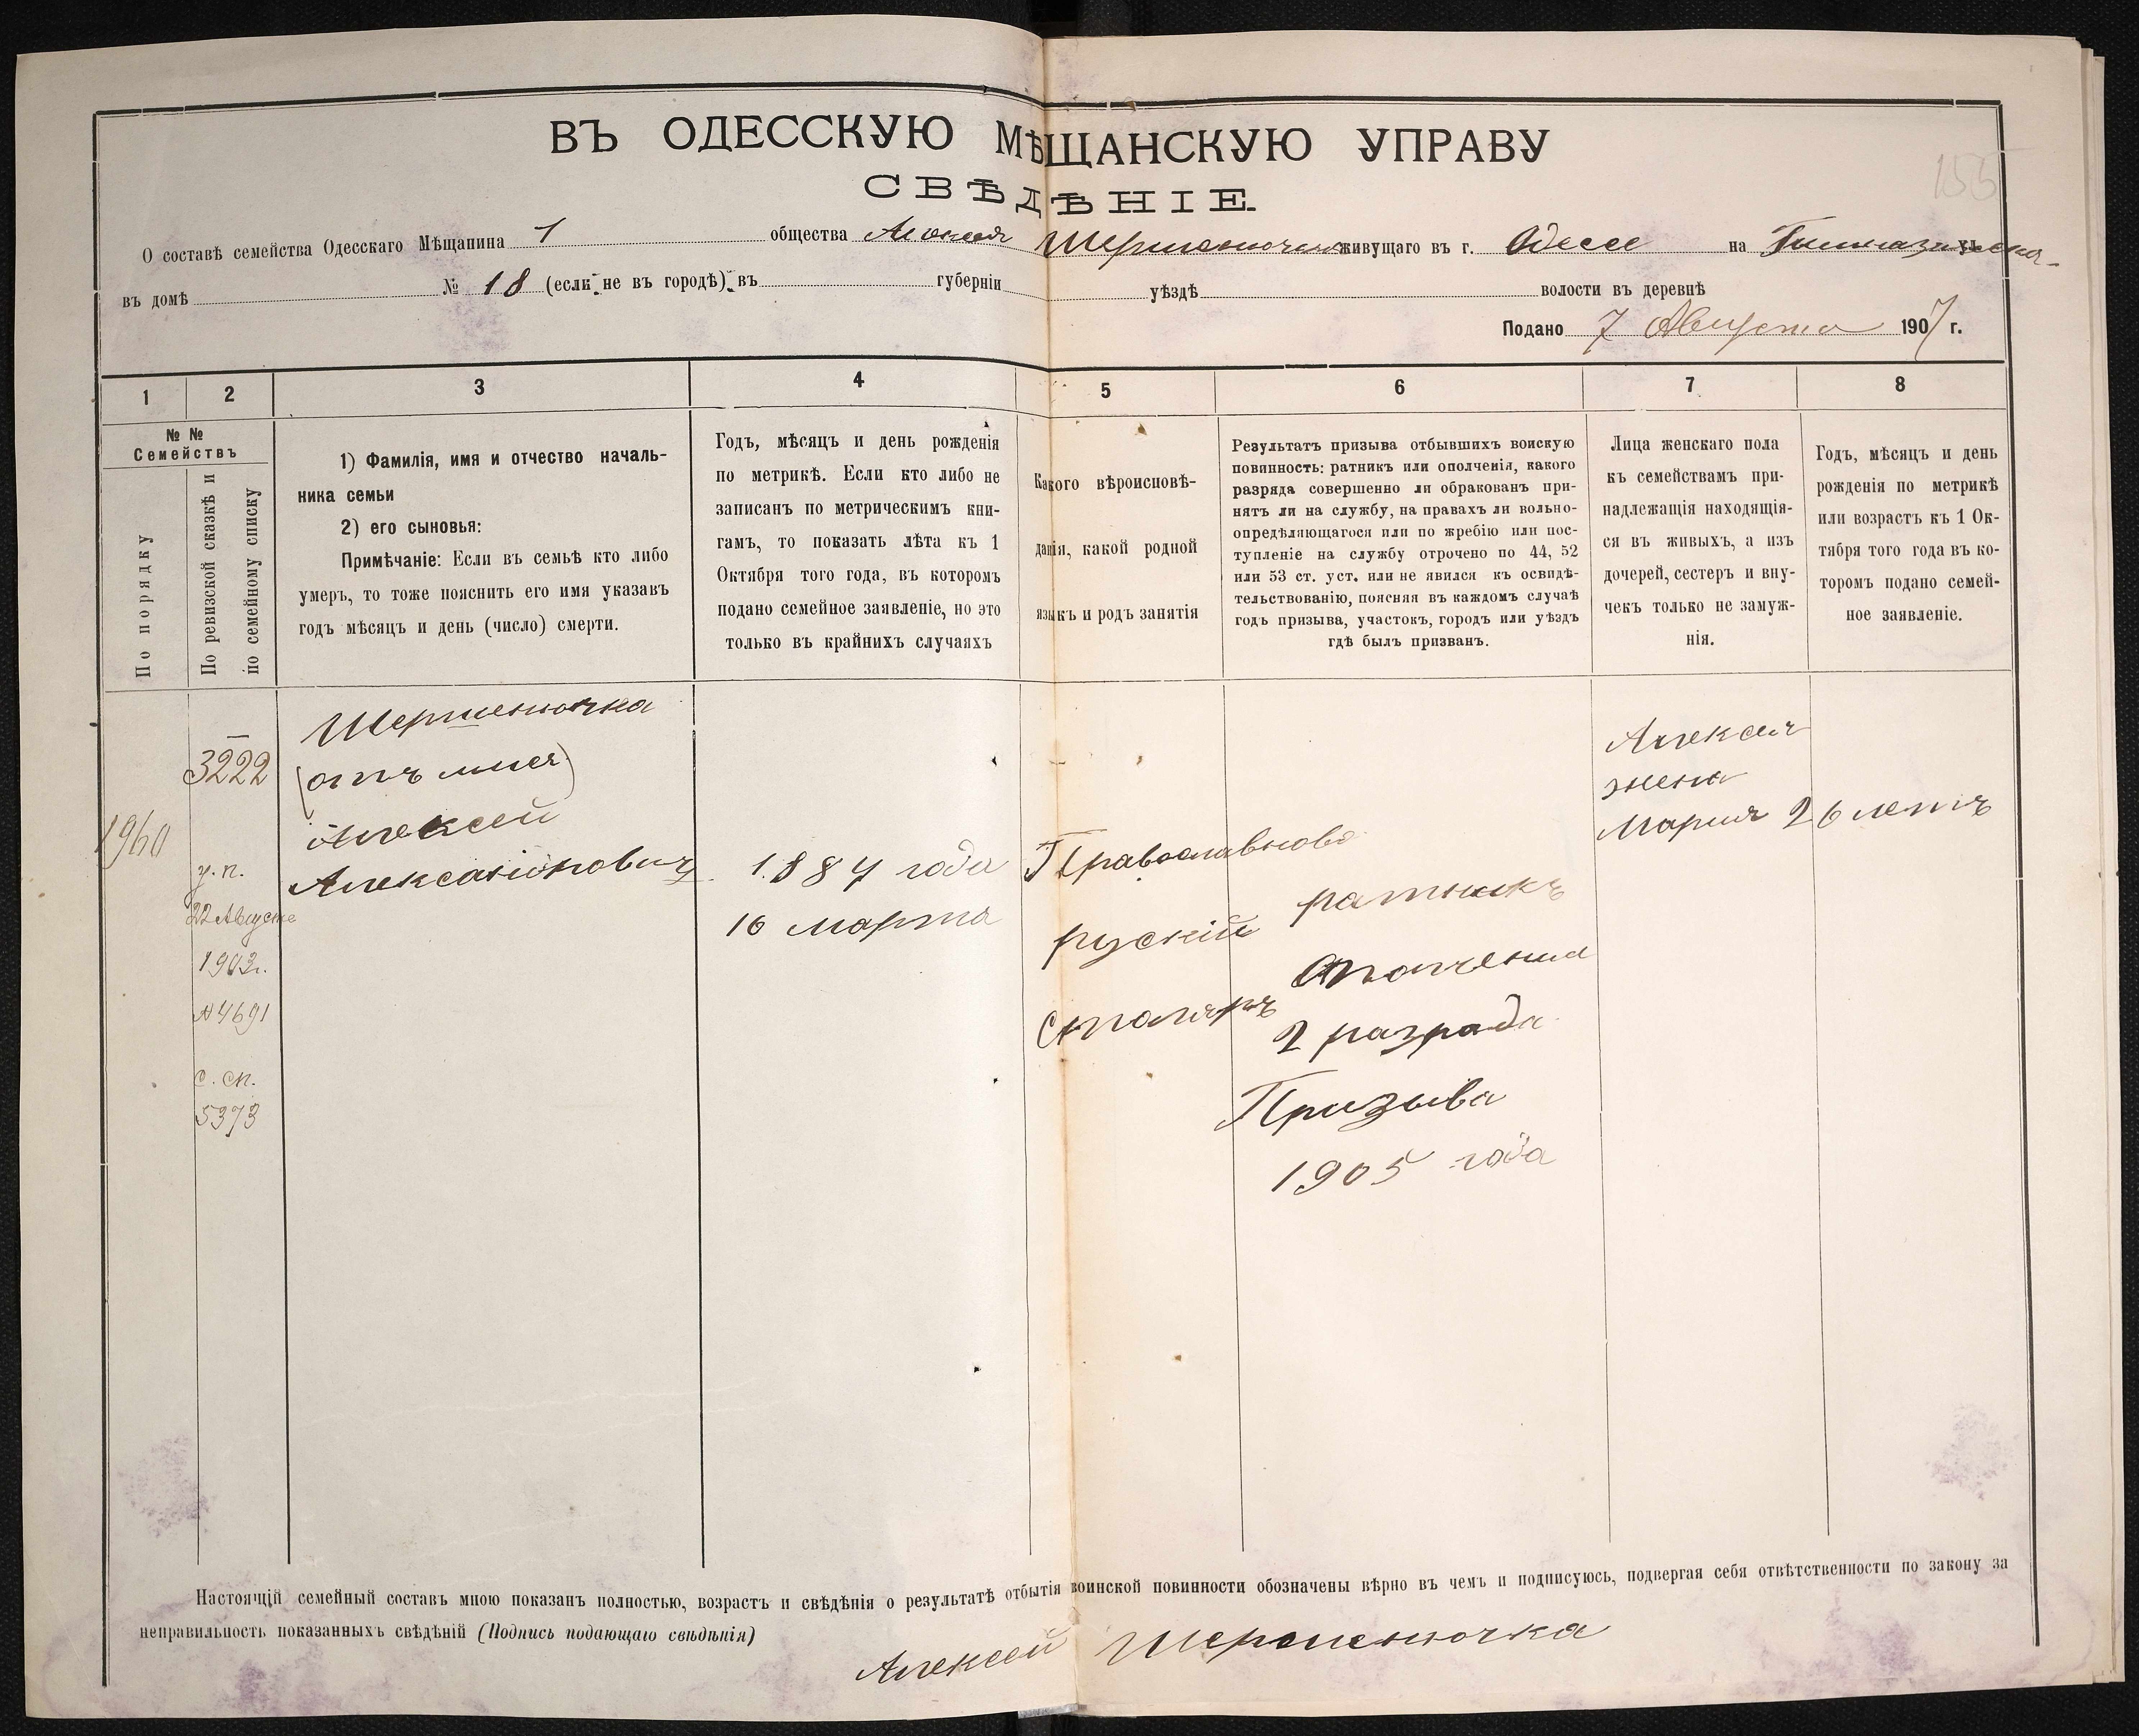 155
ВЪ ОДЕССКУЮ МѢЩАНСКУЮ УПРАВУ
СВѢДѢНІЕ.
О составѣ семейства Одесскаго Мѣщанина 1 общества живущаго въ г. Одесе на ул.
въ домѣ № 18 (если не въ городѣ) въ губерніи уѣздѣ волости въ деревнѣ
Подано 7 Августа 1907 г.
1 2 3 4 5 6 7 8
№ №
Семействъ
По порядку
По ревизской сказкѣ и
по семейному списку
1) Фамилія, имя и отчество началь-
ника семьи
2) его сыновья:
Примѣчаніе: Если въ семьѣ кто либо
умеръ, то тоже пояснить его имя указавъ
годъ мѣсяцъ и день (число) смерти.
Годъ, мѣсяцъ и день рожденія
по метрикѣ. Если кто либо не
записанъ по метрическимъ кни-
гамъ, то показать лѣта къ 1
Октября того года, въ которомъ
подано семейное заявленіе, но это
только въ крайнихъ случаяхъ
Какого вѣроисповѣ-
данія, какой родной
языкъ и родъ занятія
Результатъ призыва отбывшихъ воискую
повинность: ратникъ или ополченія, какого
разряда совершенно ли обракованъ при-
нятъ ли на службу, на правахъ ли вольно-
опредѣляющагося или по жребію или пос-
тупленіе на службу отрочено по 44, 52
или 53 ст. уст. или не явился къ освидѣ-
тельствованію, поясняя въ каждомъ случаѣ
годъ призыва, участокъ, городъ или уѣздъ
гдѣ былъ призванъ.
Лица женскаго пола
къ семействамъ при-
надлежащія находящія-
ся въ живыхъ, а изъ
дочерей, сестеръ и вну-
чекъ только не замуж-
нія.
Годъ, мѣсяцъ и день
рожденія по метрикѣ
или возрастъ къ 1 Ок-
тября того года въ ко-
торомъ подано семей-
ное заявленіе.
1960
3222
у. п.
22 Августа
1903г.
№ 4691
с. сп.
5373
Шершенючка
Алексей
1884 года
16 марта
Православново
руский
столяръ
ратникъ
ополчения
2 разрада
Призыва
1905 года
Алексея
жена
Мария 26 летъ
Настоящій семейный составъ мною показанъ полностью, возрастъ и свѣдѣнія о результатѣ отбытія воинской повинности обозначены вѣрно въ чемъ и подписуюсь, подвергая себя отвѣтственности по закону за
неправильность показанныхъ свѣдѣній (Подпись подающаго свѣдѣнія)
Алексей Шершенючка